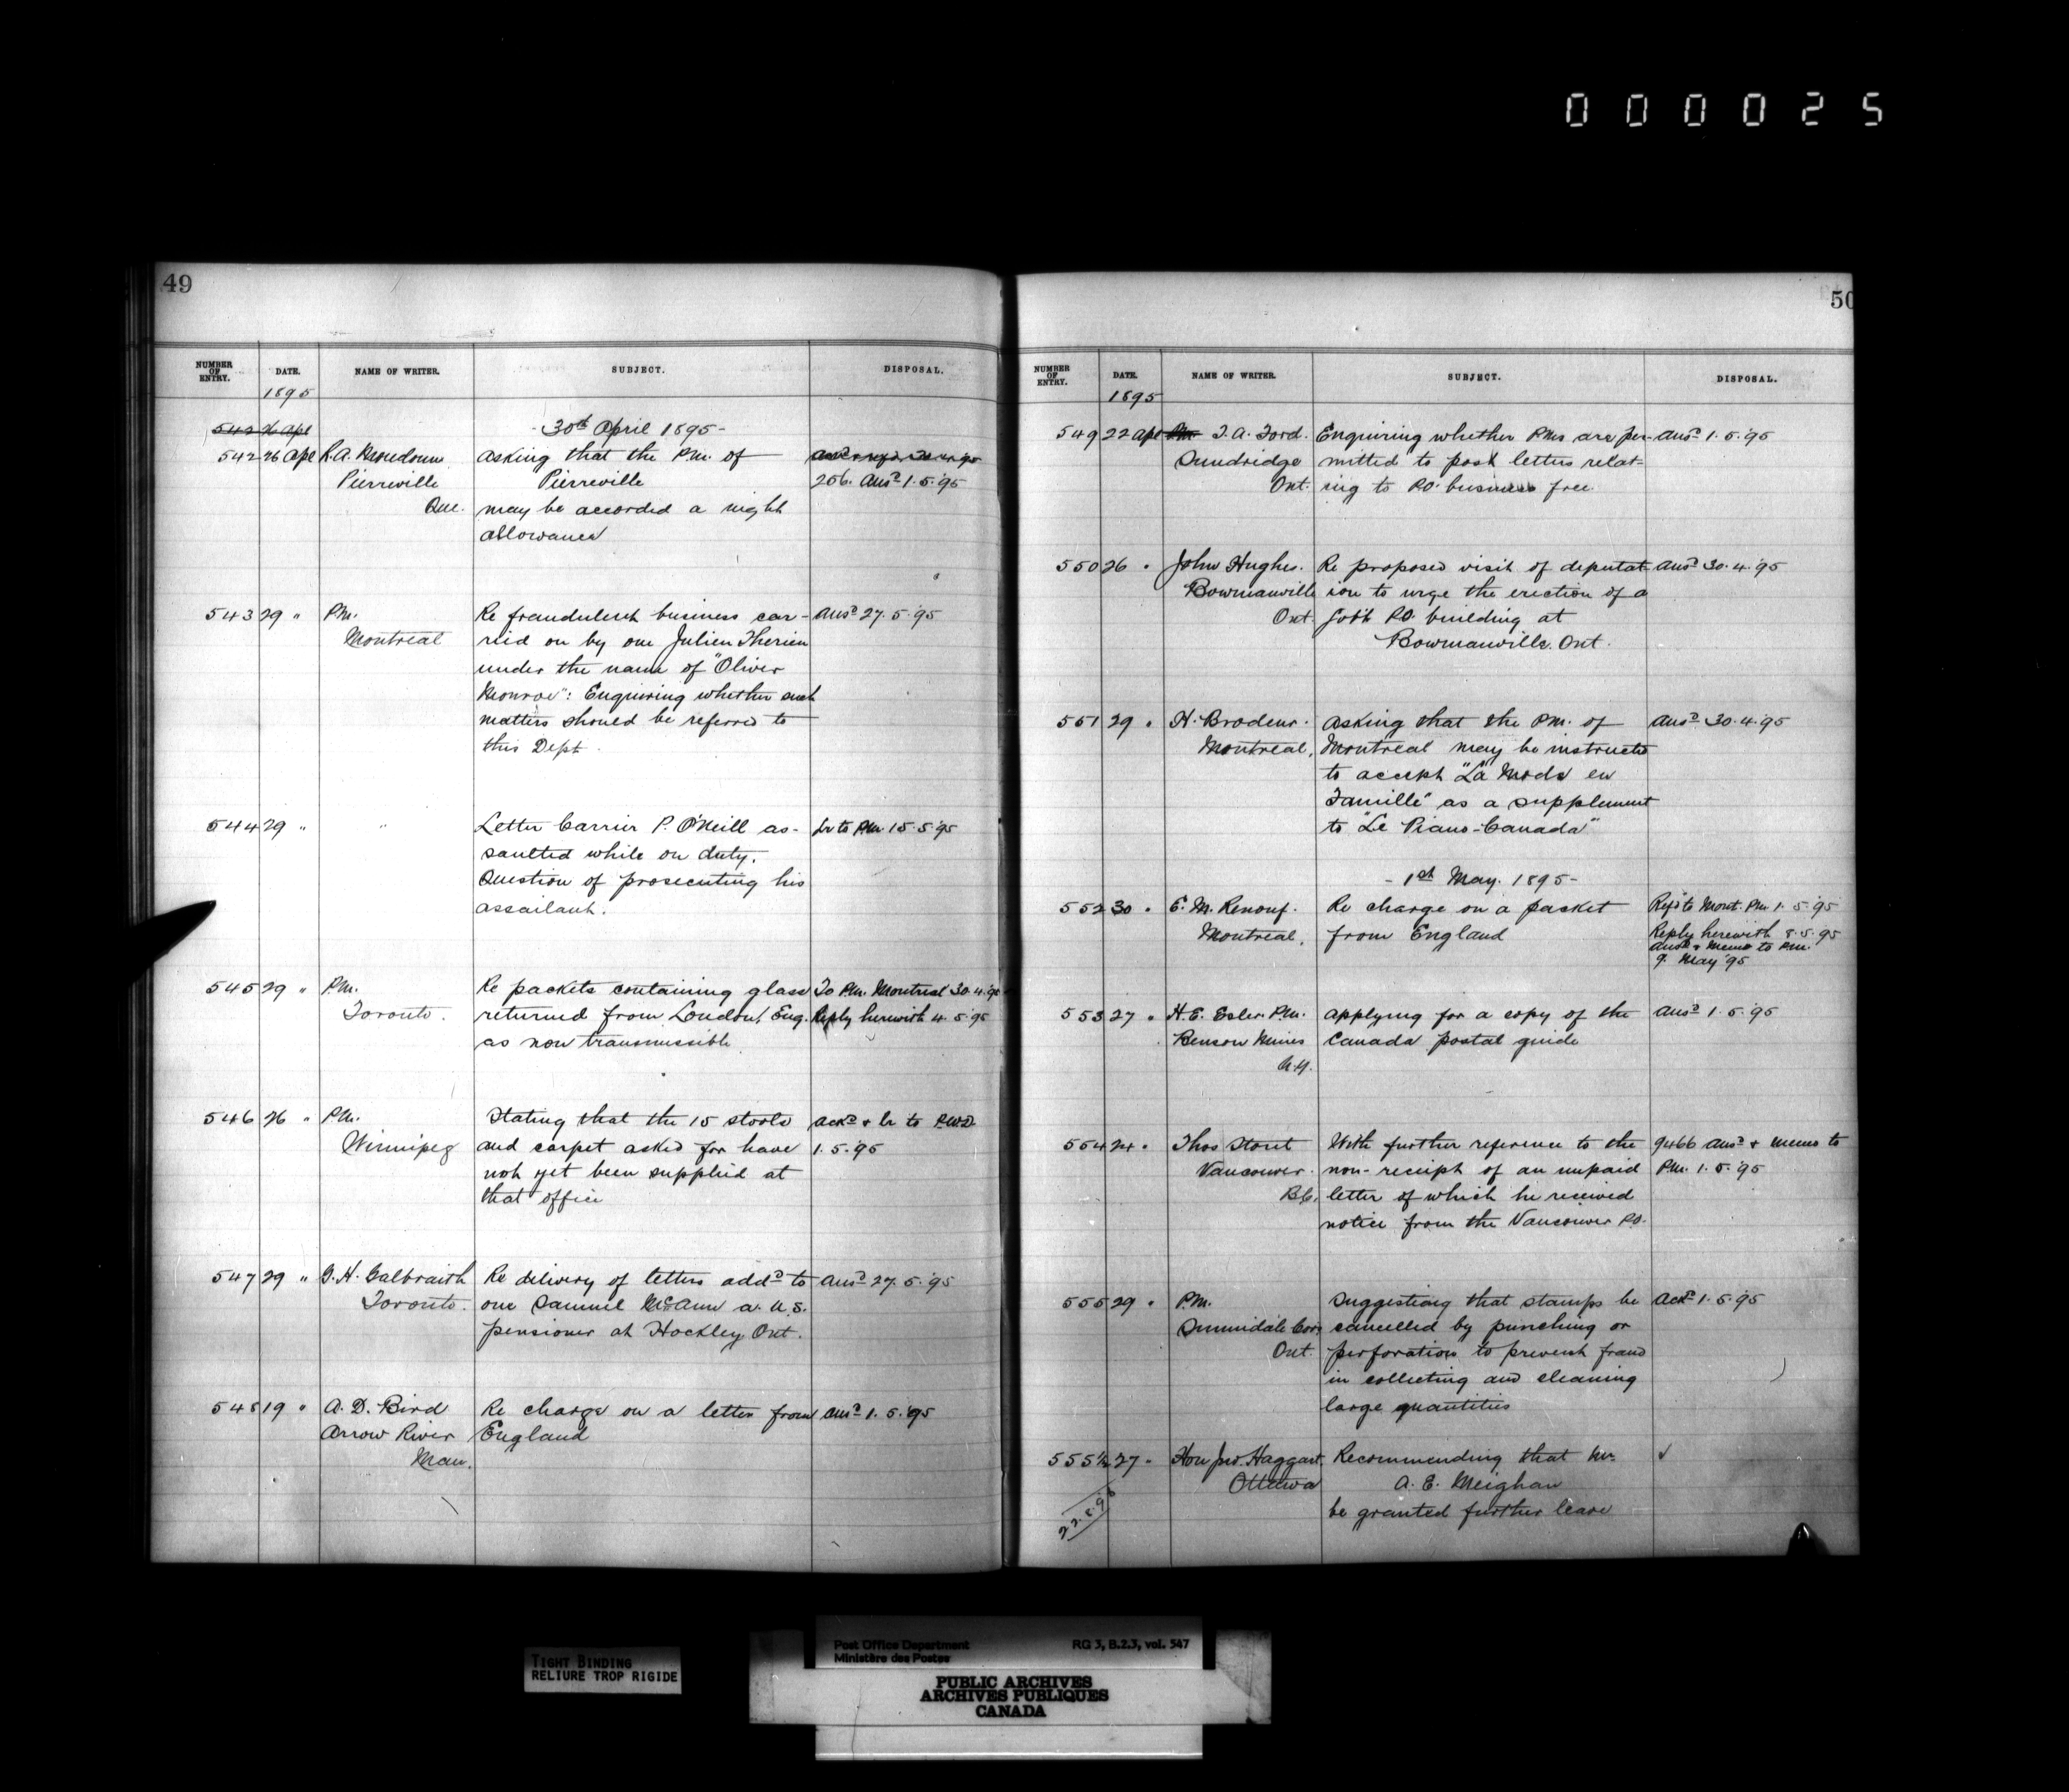 000025
49
NUMBER OF ENTRY. DATE. NAME OF WRITER. SUBJECT. DISPOSAL.
1895
542 26 Apl - 30th April 1895 -
542 26 Apl R.A. Asking that the P.M. of
Pierreville Pierreville 256. Ansd 1.5.'95
Que. may be accorded a night
allowance
543 29 " P.M. Re fraudulent business car- Ansd 27.5.'95
Montreal ried on by one Julien Therien
under the name of "Oliver
Monroe": Enquiring whether such
matters should be referred to
this Dept.
544 29 " " Letter Carrier P. O'Neill as- Lr to P.M. 15.5.'95
saulted while on duty.
Question of prosecuting his
assailant.
545 29 " P.M. Re packets containing glass To P.M. Montreal 30.4.'95
Toronto. returned from London, Eng. Reply herewith 4.5.'95
as non transmissible
546 26 " P.M. Stating that the 15 stools Ackd & lr to P.W.D.
Winnipeg and carpet asked for have 1.5.'95
not yet been supplied at
that office
547 29 " G.H. Galbraith Re delivery of letters addd to Ansd 27.5.'95
Toronto. one Samuel McCann a U.S.
pensioner at Hockley, Ont.
548 19 " A.D. Bird Re charge on a letter from Ansd 1.5.'95
Arrow River England
Man.
50
NUMBER OF ENTRY. DATE. NAME OF WRITER. SUBJECT. DISPOSAL.
1895
549 22 Apl PM J.A. Ford. Enquiring whether PMs are per- Ansd 1.5.'95
Sundridge mitted to post letters relat-
Ont. ing to P.O. business free.
550 26 " John Hughes. Re proposed visit of deputat- Ansd 30.4.'95
Bowmanville ion to urge the erection of a
Ont. Govt P.O. building at
Bowmanville. Ont.
551 29 " H. Brodeur. Asking that the P.M. of Ansd 30.4.'95
Montreal. Montreal may be instructed
to accept "La Mode en
Famille" as a supplement
to "Le Piano-Canada"
- 1st May. 1895 -
552 30 " E.M. Renouf. Re charge on a packet Refd to Mont. P.M. 1.5.'95
Montreal. from England Reply herewith 8.5.'95
Ansd & Memo to P.M.
9. May '95
553 27 " H.E. Esler. P.M. Applying for a copy of the Ansd 1.5.'95
Benson Mines Canada postal guide
N.Y.
554 24 " Thos Stout With further reference to the 9466 Ansd & memo to
Vancouver. non-receipt of an unpaid P.M. 1.5.'95
B.C. letter of which he received
notice from the Vancouver P.O.
555 29 " P.M. Suggesting that stamps be Ackd 1.5.'95
Sunnidale Cors cancelled by punching or
Ont. perforation to prevent fraud
in collecting and cleaning
large quantities
555½ 27 " Hon Jno. Haggart Recommending that Mr. ✓
Ottawa A.E. Meighan
be granted further leave
TIGHT BINDING
RELIURE TROP RIGIDE
Post Office Department RG 3, B.2.3, vol. 547
Ministère des Postes
PUBLIC ARCHIVES
ARCHIVES PUBLIQUES
CANADA